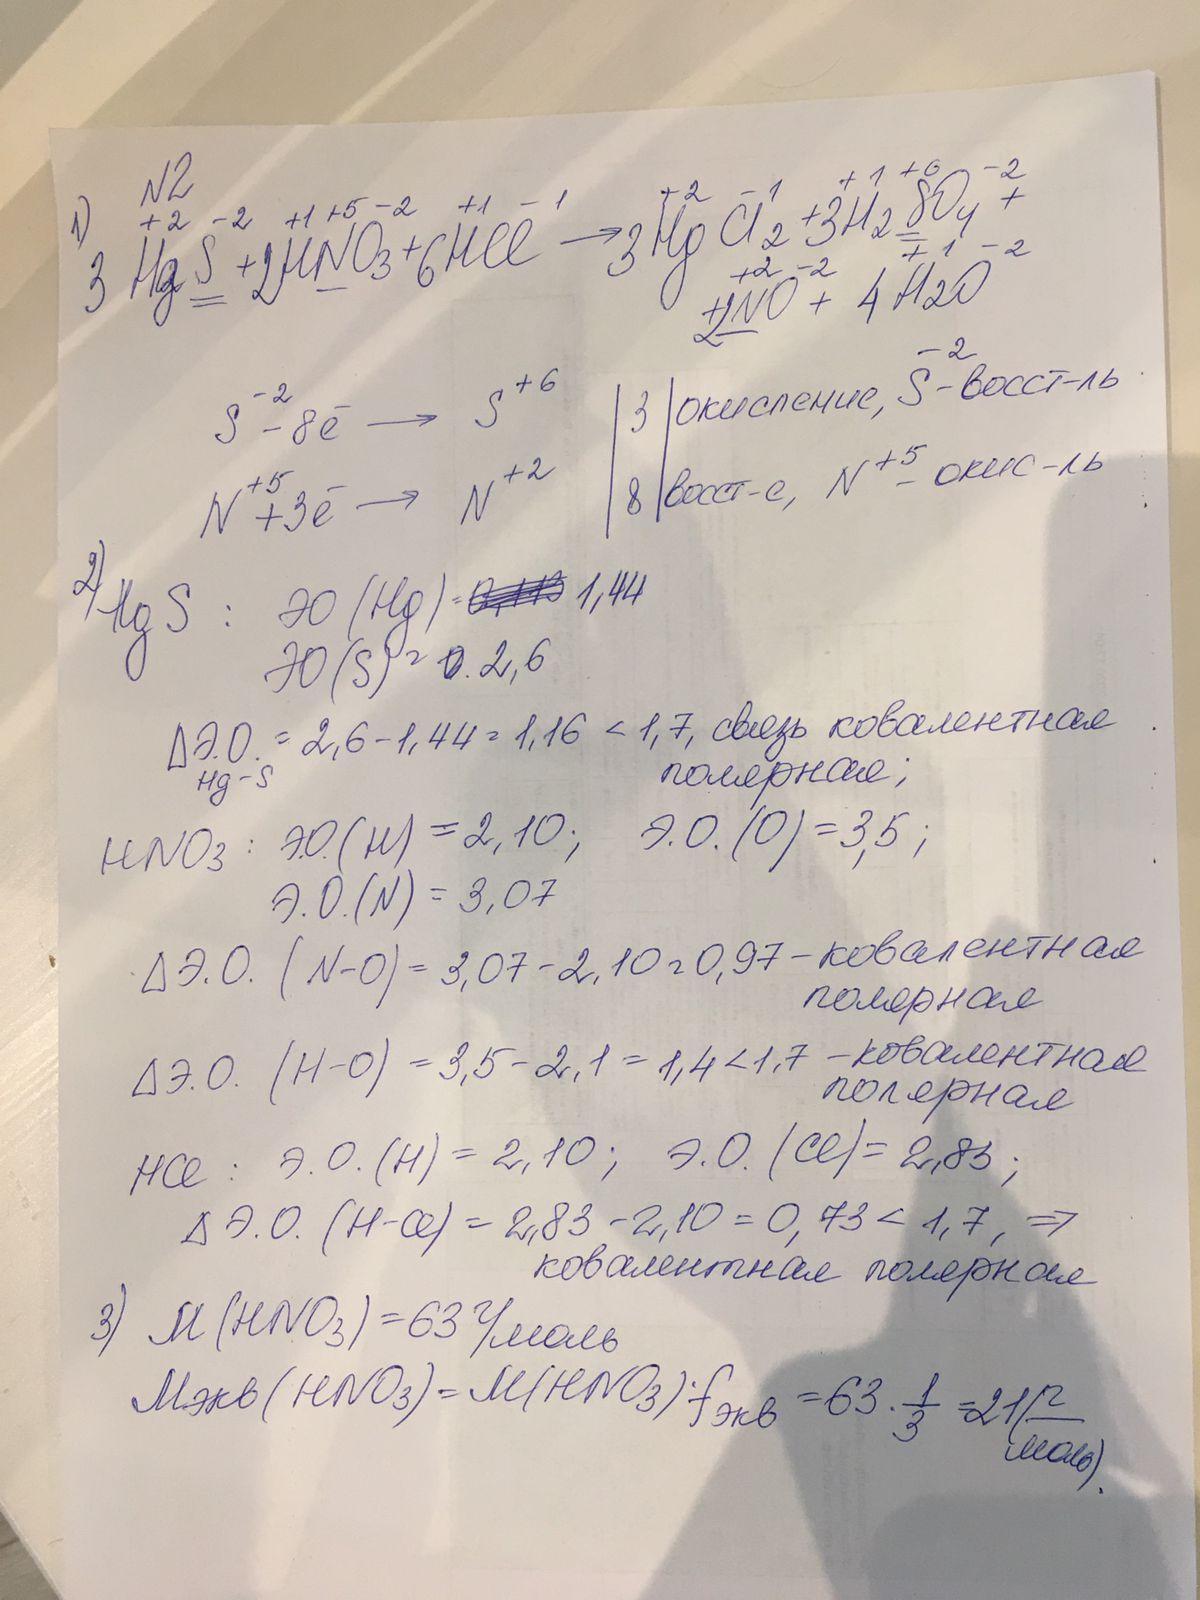 N2
1) +2 -2 +1 +5 -2 +1 -1 +2 -1 +1 +6 -2
3 HgS + 2HNO3 + 6HCl → 3HgCl2 + 3H2SO4 +
+2 -2 +1 -2
+ 2NO + 4H2O
S⁻² - 8ē → S⁺⁶ | 3 | окисление, S⁻² - восст-ль
N⁺⁵ + 3ē → N⁺² | 8 | восст-е, N⁺⁵ - окис-ль
2) HgS : ЭО (Hg) = 1,44
ЭО (S) = 2,6
ΔЭ.О. Hg-S = 2,6 - 1,44 = 1,16 < 1,7, связь ковалентная
полярная;
HNO3 : Э.О.(H) = 2,10; Э.О.(O) = 3,5;
Э.О.(N) = 3,07
ΔЭ.О. (N-O) = 3,07 - 2,10 = 0,97 - ковалентная
полярная
ΔЭ.О. (H-O) = 3,5 - 2,1 = 1,4 < 1,7 - ковалентная
полярная
HCl : Э.О.(H) = 2,10; Э.О.(Cl) = 2,83;
ΔЭ.О. (H-Cl) = 2,83 - 2,10 = 0,73 < 1,7, ⇒
ковалентная полярная
3) M(HNO3) = 63 г/моль
Mэкв(HNO3) = M(HNO3)·fэкв = 63·1/3 = 21(г/моль).